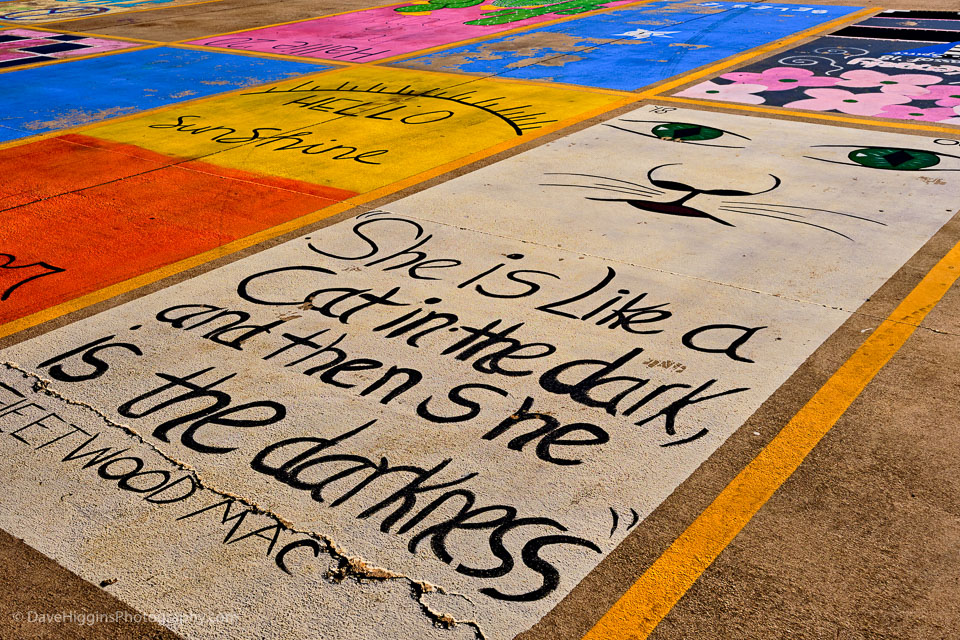 Hollie
HELLO
sunshine
"She is Like a
Cat in the dark
and then she
is the darkness"
FLEETWOOD MAC
© DaveHigginsPhotography.com